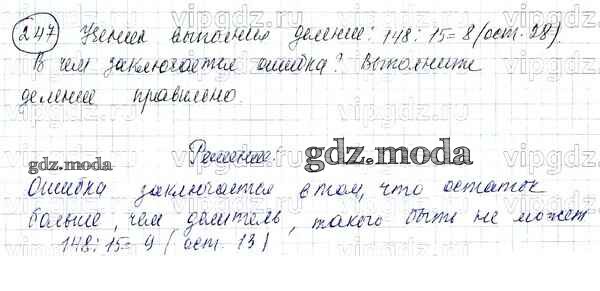 247 Ученик выполнил деление: 148:15=8 (ост. 28).
В чем заключается ошибка? Выполните
деление правильно.
Решение.
gdz.moda
gdz.moda
Ошибка заключается в том, что остаток
больше, чем делитель, такого быть не может
148:15=9 (ост. 13)